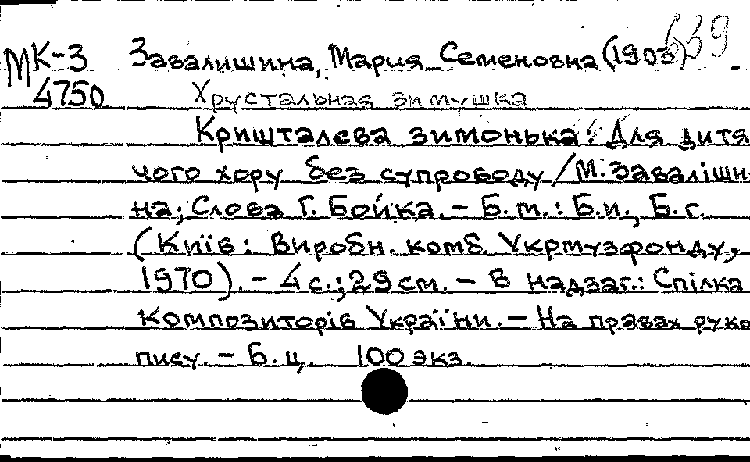 МК-3 Завалишина, Мария Семеновна (1903) 639
4750 Хрустальная зимушка
Кришталева зимонька: Для дитя
чого хору без супроводу / М. Заваліши
на; Слова Г. Бойка. – Б. м.: Б. и., Б. г.
(Київ: Виробн. комб. Укрмузфонду,
1970). – 4 с.; 29 см. – В надзаг.: Спілка
композиторів України. – На правах руко
пису. – Б. ц. 100 экз.